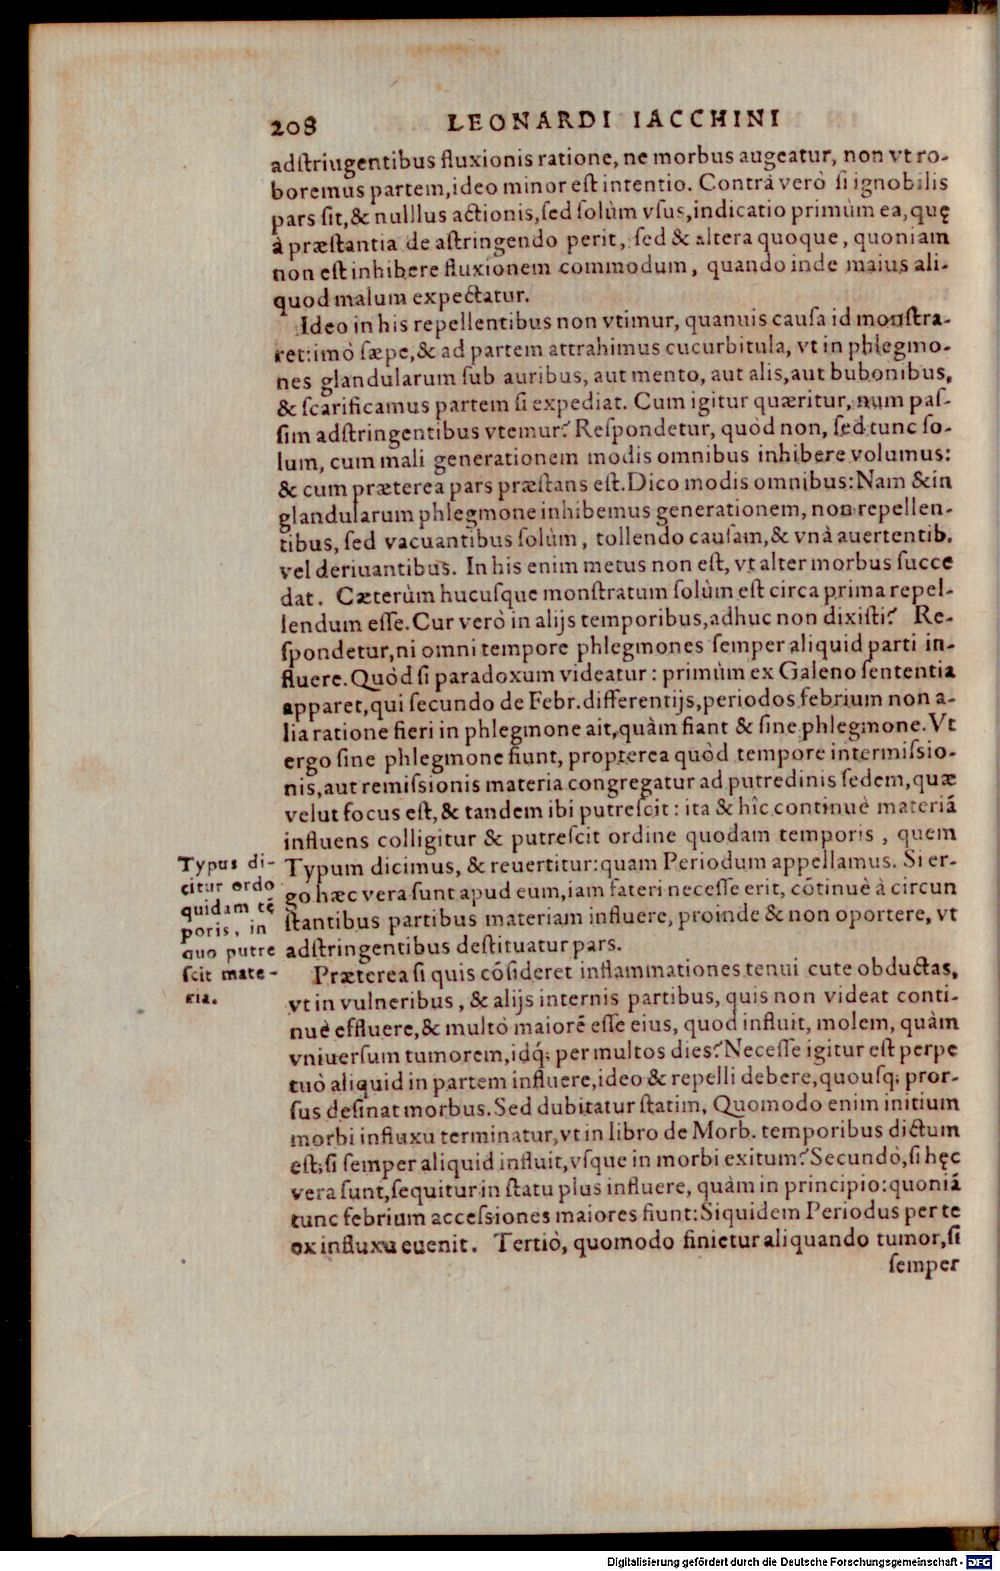 208 LEONARDI IACCHINI
adſtriugentibus fluxionis ratione, ne morbus augeatur, non vt ro-
boremus partem, ideo minor eſt intentio. Contrà verò ſi ignobilis
pars ſit, & nulllus actionis, ſed ſolùm vſus, indicatio primùm ea, quę
à præſtantia de aſtringendo perit, ſed & altera quoque, quoniam
non eſt inhibere fluxionem commodum, quando inde maius ali-
quod malum expectatur.
Ideo in his repellentibus non vtimur, quanuis cauſa id monſtra-
ret: imò ſæpe, & ad partem attrahimus cucurbitula, vt in phlegmo-
nes glandularum ſub auribus, aut mento, aut alis, aut bubonibus,
& ſcarificamus partem ſi expediat. Cum igitur quæritur, num paſ-
ſim adſtringentibus vtemur? Reſpondetur, quòd non, ſed tunc ſo-
lum, cum mali generationem modis omnibus inhibere volumus:
& cum præterea pars præſtans eſt. Dico modis omnibus: Nam & in
glandularum phlegmone inhibemus generationem, non repellen-
tibus, ſed vacuantibus ſolùm, tollendo cauſam, & vnà auertentib.
vel deriuantibus. In his enim metus non eſt, vt alter morbus ſucce
dat. Cæterùm hucuſque monſtratum ſolùm eſt circa prima repel-
lendum eſſe. Cur verò in alijs temporibus, adhuc non dixiſti? Re-
ſpondetur, ni omni tempore phlegmones ſemper aliquid parti in-
fluere. Quòd ſi paradoxum videatur: primùm ex Galeno ſententia
apparet, qui ſecundo de Febr. differentijs, periodos febrium non a-
lia ratione fieri in phlegmone ait, quàm fiant & ſine phlegmone. Vt
ergo ſine phlegmone fiunt, propterea quòd tempore intermiſsio-
nis, aut remiſsionis materia congregatur ad putredinis ſedem, quæ
velut focus eſt, & tandem ibi putreſcit: ita & hîc continuè materiā
influens colligitur & putreſcit ordine quodam temporis, quem
Typum dicimus, & reuertitur: quam Periodum appellamus. Si er-
go hæc vera ſunt apud eum, iam fateri neceſſe erit, cōtinuè à circun
ſtantibus partibus materiam influere, proinde & non oportere, vt
adſtringentibus deſtituatur pars.
Typus di-
citur ordo
quidam tē
poris, in
quo putre
ſcit mate-
ria.
Præterea ſi quis cōſideret inflammationes tenui cute obductas,
vt in vulneribus, & alijs internis partibus, quis non videat conti-
nuè effluere, & multò maiorē eſſe eius, quod influit, molem, quàm
vniuerſum tumorem, idq́; per multos dies? Neceſſe igitur eſt perpe
tuò aliquid in partem influere, ideo & repelli debere, quouſq; pror-
ſus deſinat morbus. Sed dubitatur ſtatim, Quomodo enim initium
morbi influxu terminatur, vt in libro de Morb. temporibus dictum
eſt; ſi ſemper aliquid influit, vſque in morbi exitum? Secundò, ſi hęc
vera ſunt, ſequitur in ſtatu plus influere, quàm in principio: quoniā
tunc febrium acceſsiones maiores fiunt: Siquidem Periodus per te
ex influxu euenit. Tertiò, quomodo finietur aliquando tumor, ſi
ſemper
Digitalisierung gefördert durch die Deutsche Forschungsgemeinschaft - DFG